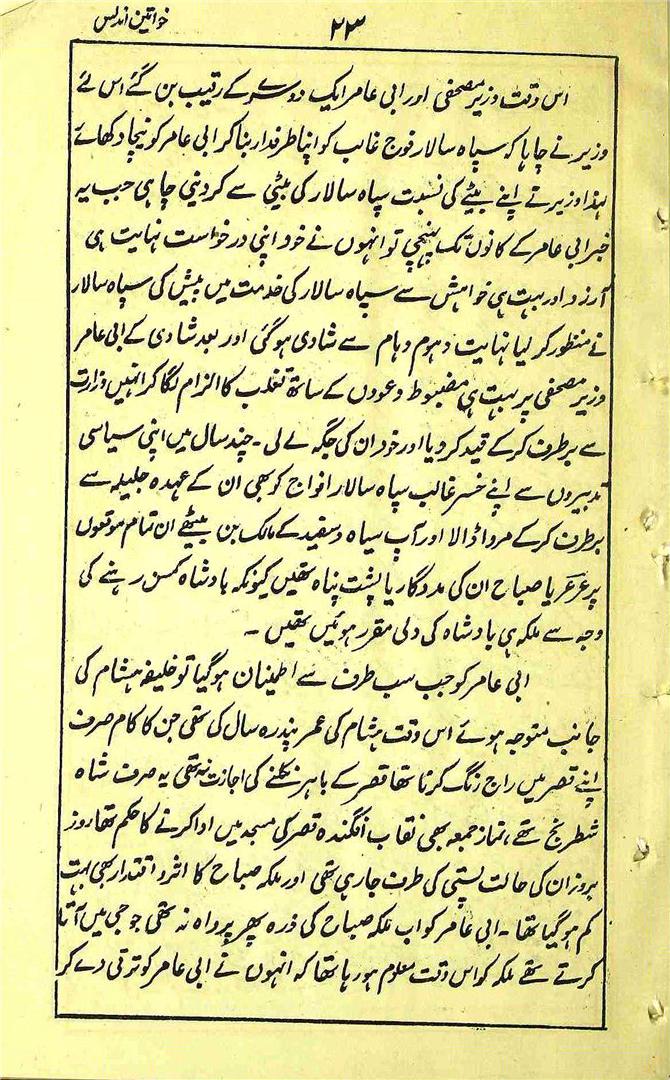 خواتین اندلس
۲۳
اس وقت وزیر مصحفی اور ابی عامر ایک دوسرے کے رقیب بن گئے اس لئے
وزیر نے چاہا کہ سپاہ سالار فوج غالب کو اپنا طرفدار بنا کر ابی عامر کو نیچا دکھائے
لہذا وزیر نے اپنے بیٹے کی نسبت سپاہ سالار کی بیٹی سے کر دینی چاہی جب یہ
خبر ابی عامر کے کانوں تک پہنچی تو انہوں نے خود اپنی درخواست نہایت ہی
آرزو اور بہت ہی خواہش سے سپاہ سالار کی خدمت میں پیش کی سپاہ سالار
نے منظور کر لیا نہایت دہوم دہام سے شادی ہو گئی اور بعد شادی کے ابی عامر
وزیر مصحفی پر بہت ہی مضبوط دعووں کے ساتھ تغلب کا الزام لگا کر انہیں وزارت
سے برطرف کر کے قید کر دیا اور خود ان کی جگہ لے لی ۔ چند سال میں اپنی سیاسی
تدبیروں سے اپنے خسر غالب سپاہ سالار افواج کو بھی ان کے عہدہ جلیلہ سے
برطرف کر کے مروا ڈالا اور آپ سیاہ و سفید کے مالک بن بیٹھے ان تمام موقعوں
پر عزعریا صباح ان کی مددگار یا پشت پناہ تھیں کیونکہ بادشاہ کمسن رہنے کی
وجہ سے ملکہ ہی بادشاہ کی ولی مقرر ہوئیں تھیں ۔
ابی عامر کو جب سب طرف سے اطمینان ہو گیا تو خلیفہ ہشام کی
جانب متوجہ ہوئے اس وقت ہشام کی عمر پندرہ سال کی تھی جن کا کام صرف
اپنے قصر میں راج رنگ کرنا تھا قصر کے باہر نکلنے کی اجازت نہ تھی یہ صرف شاہ
شطرنج تھے، نماز جمعہ بھی نقاب افگندہ قصر کی مسجد میں ادا کرنے کا حکم تھا روز
بروز ان کی حالت پستی کی طرف جا رہی تھی اور ملکہ صباح کا اثر و اقتدار بھی بہت
کم ہو گیا تھا ۔ ابی عامر کو اب ملکہ صباح کی ذرہ بھر پرواہ نہ تھی جو جی میں آتا
کرتے تھے ملکہ کو اس وقت معلوم ہو رہا تھا کہ انہوں نے ابی عامر کو ترقی دے کر